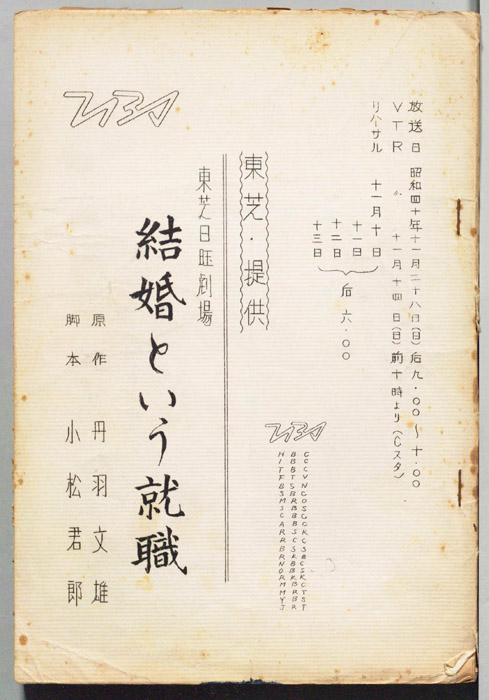 放送日 昭和四十年十一月二十八日(日)后九・〇〇〜十・〇〇
VTR 〃 十一月十四日(日)前十時より(Cスタ)
リハーサル 十一月十日
十一日
十二日
十三日
后六・〇〇
東芝・提供
TBS
東芝日旺劇場
TBS
結婚という就職
原作 丹羽文雄
脚本 小松君郎